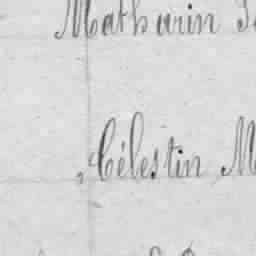 Mathurin
Célestin M